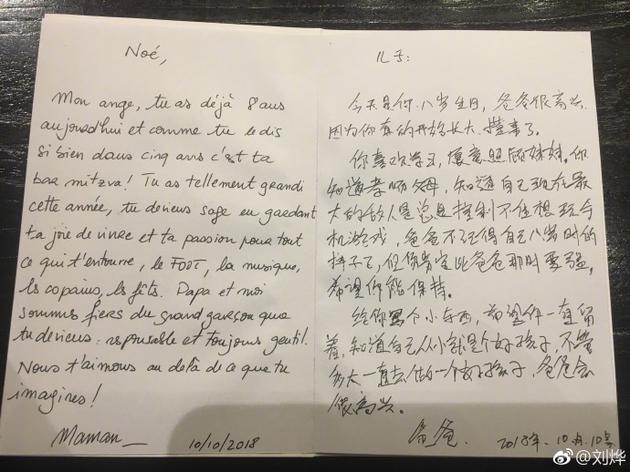 Noé,
Mon ange, tu as déjà 8 ans
aujourd'hui et comme tu le dis
si bien dans cinq ans c'est ta
bar mitzva! Tu as tellement grandi
cette année, tu deviens sage en gardant
ta joie de vivre et ta passion pour tout
ce qui t'entoure, le FOOT, la musique,
les copains, les fêts. Papa et moi
sommes fiers du grand garçon que
tu deviens: responsable et toujours gentil.
Nous t'aimons au delà de ce que tu
imagines!
Maman_ 10/10/2018
儿子:
今天是你八岁生日,爸爸很高兴,
因为你真的开始长大、懂事了。
你喜欢学习,愿意照顾妹妹。你
知道孝顺父母,知道自己现在最
大的敌人是总是控制不住想玩手
机游戏,爸爸不记得自己八岁时的
样子了,但你肯定比爸爸那时要强,
希望你能保持。
给你写个小东西,希望你一直留
着,知道自己从小就是个好孩子,不管
多大一直去做一个好孩子,爸爸会
很高兴。
爸爸 2018年.10月.10号
@刘烨